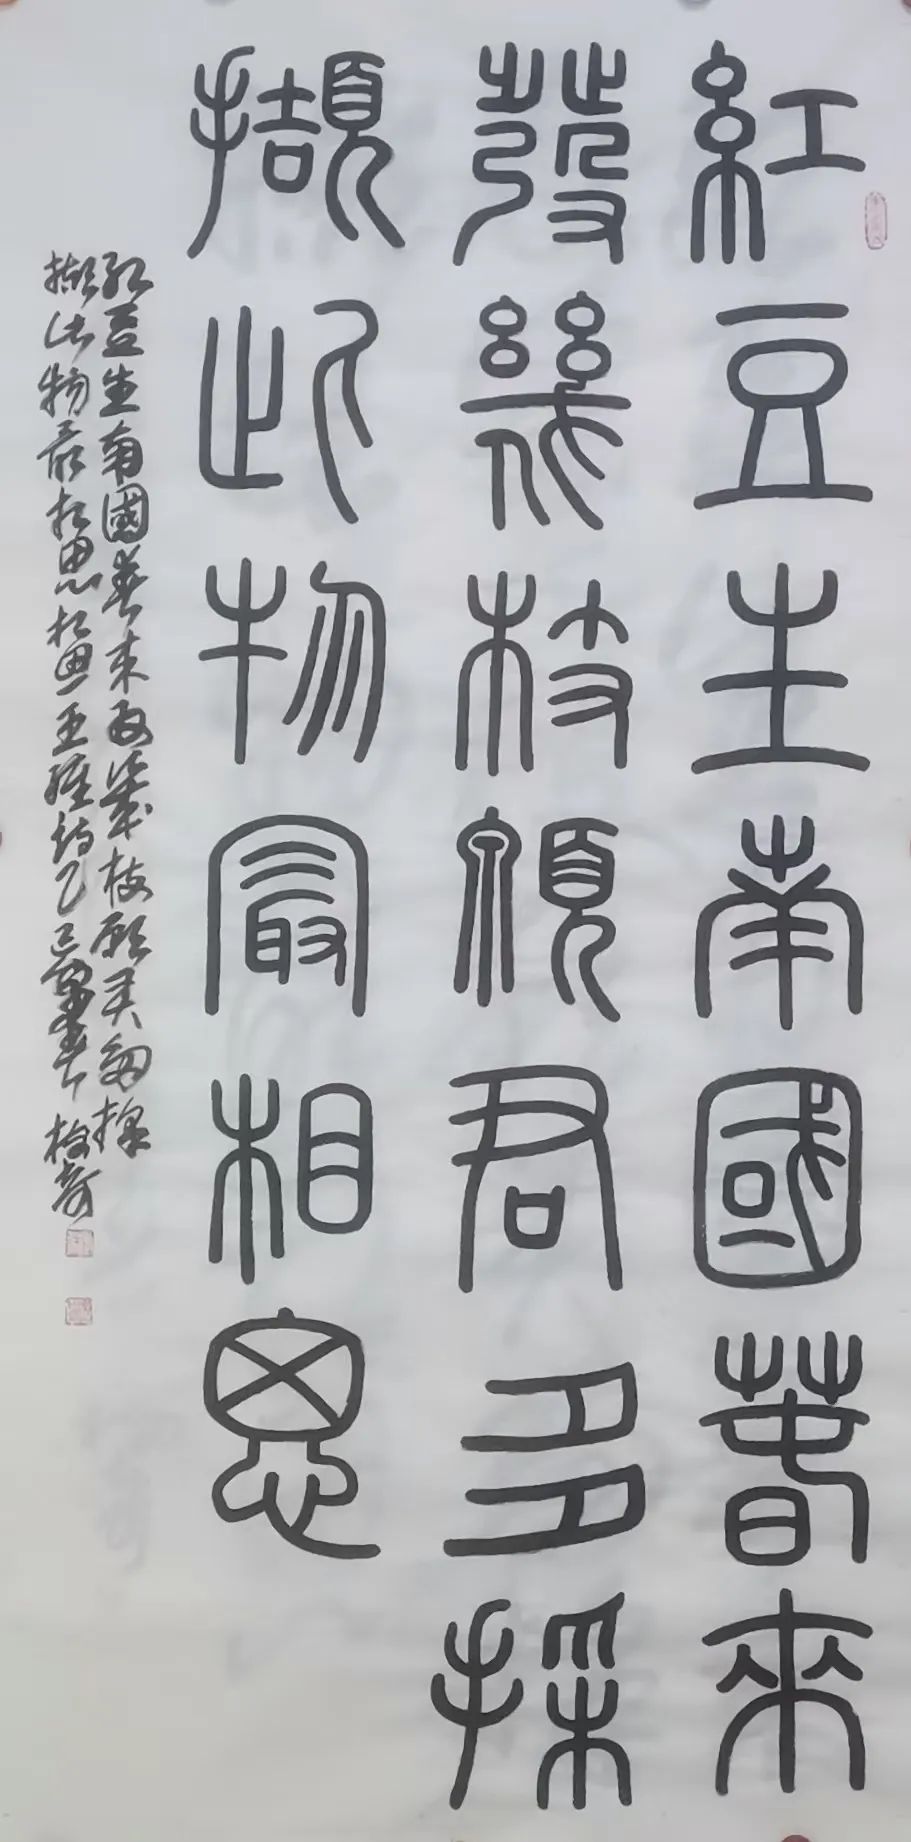 紅豆生南國春來
發幾枝願君多採
擷此物最相思
紅豆生南國春來發幾枝願君多採
擷此物最相思相思王維詩乙巳